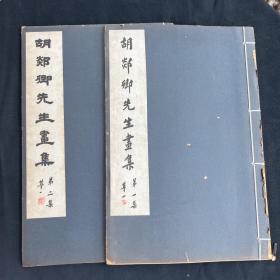 胡郯卿先生畫集
第一集
胡郯卿先生畫集
第二集